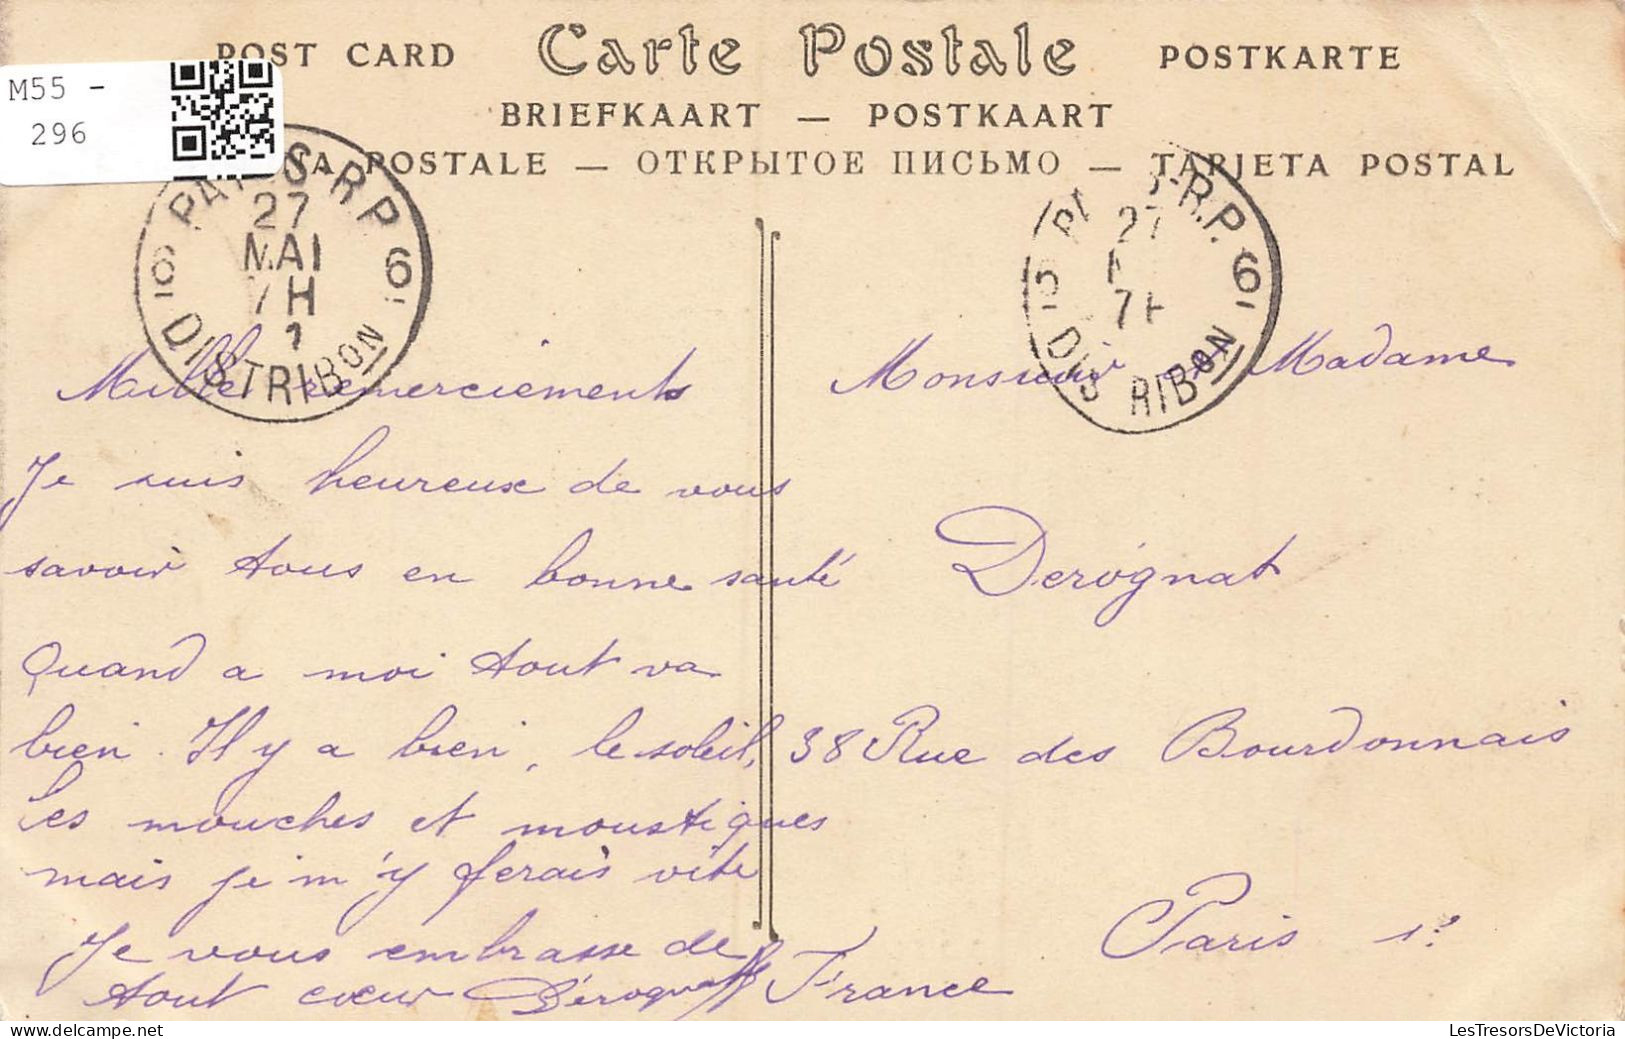 POST CARD Carte Postale POSTKARTE
BRIEFKAART — POSTKAART
POSTALE — ОТКРЫТОЕ ПИСЬМО — TARJETA POSTAL
M55 -
296
PARIS R.P.
27
MAI
7H
6 6
DISTRIBON
R.P.
27
7H
6
DIS RIBON
Mille remerciements
Je suis heureux de vous
savoir tous en bonne santé
Quand a moi tout va
bien. Il y a bien, le soleil,
les mouches et moustiques
mais je m'y ferais vite
Je vous embrasse de
tout cœur Dérognat
Monsieur et Madame
Dérognat
38 Rue des Bourdonnais
Paris 1º
France
LesTresorsDeVictoria